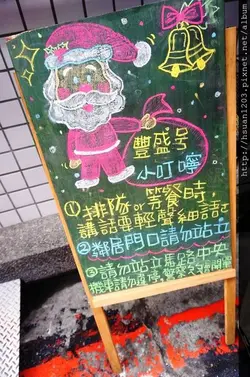 豐盛号
小叮嚀
①排隊or等餐時
講話要輕聲細語
②鄰居門口請勿站立
③請勿站立馬路中央
http://hsuan1203.pixnet.net/album